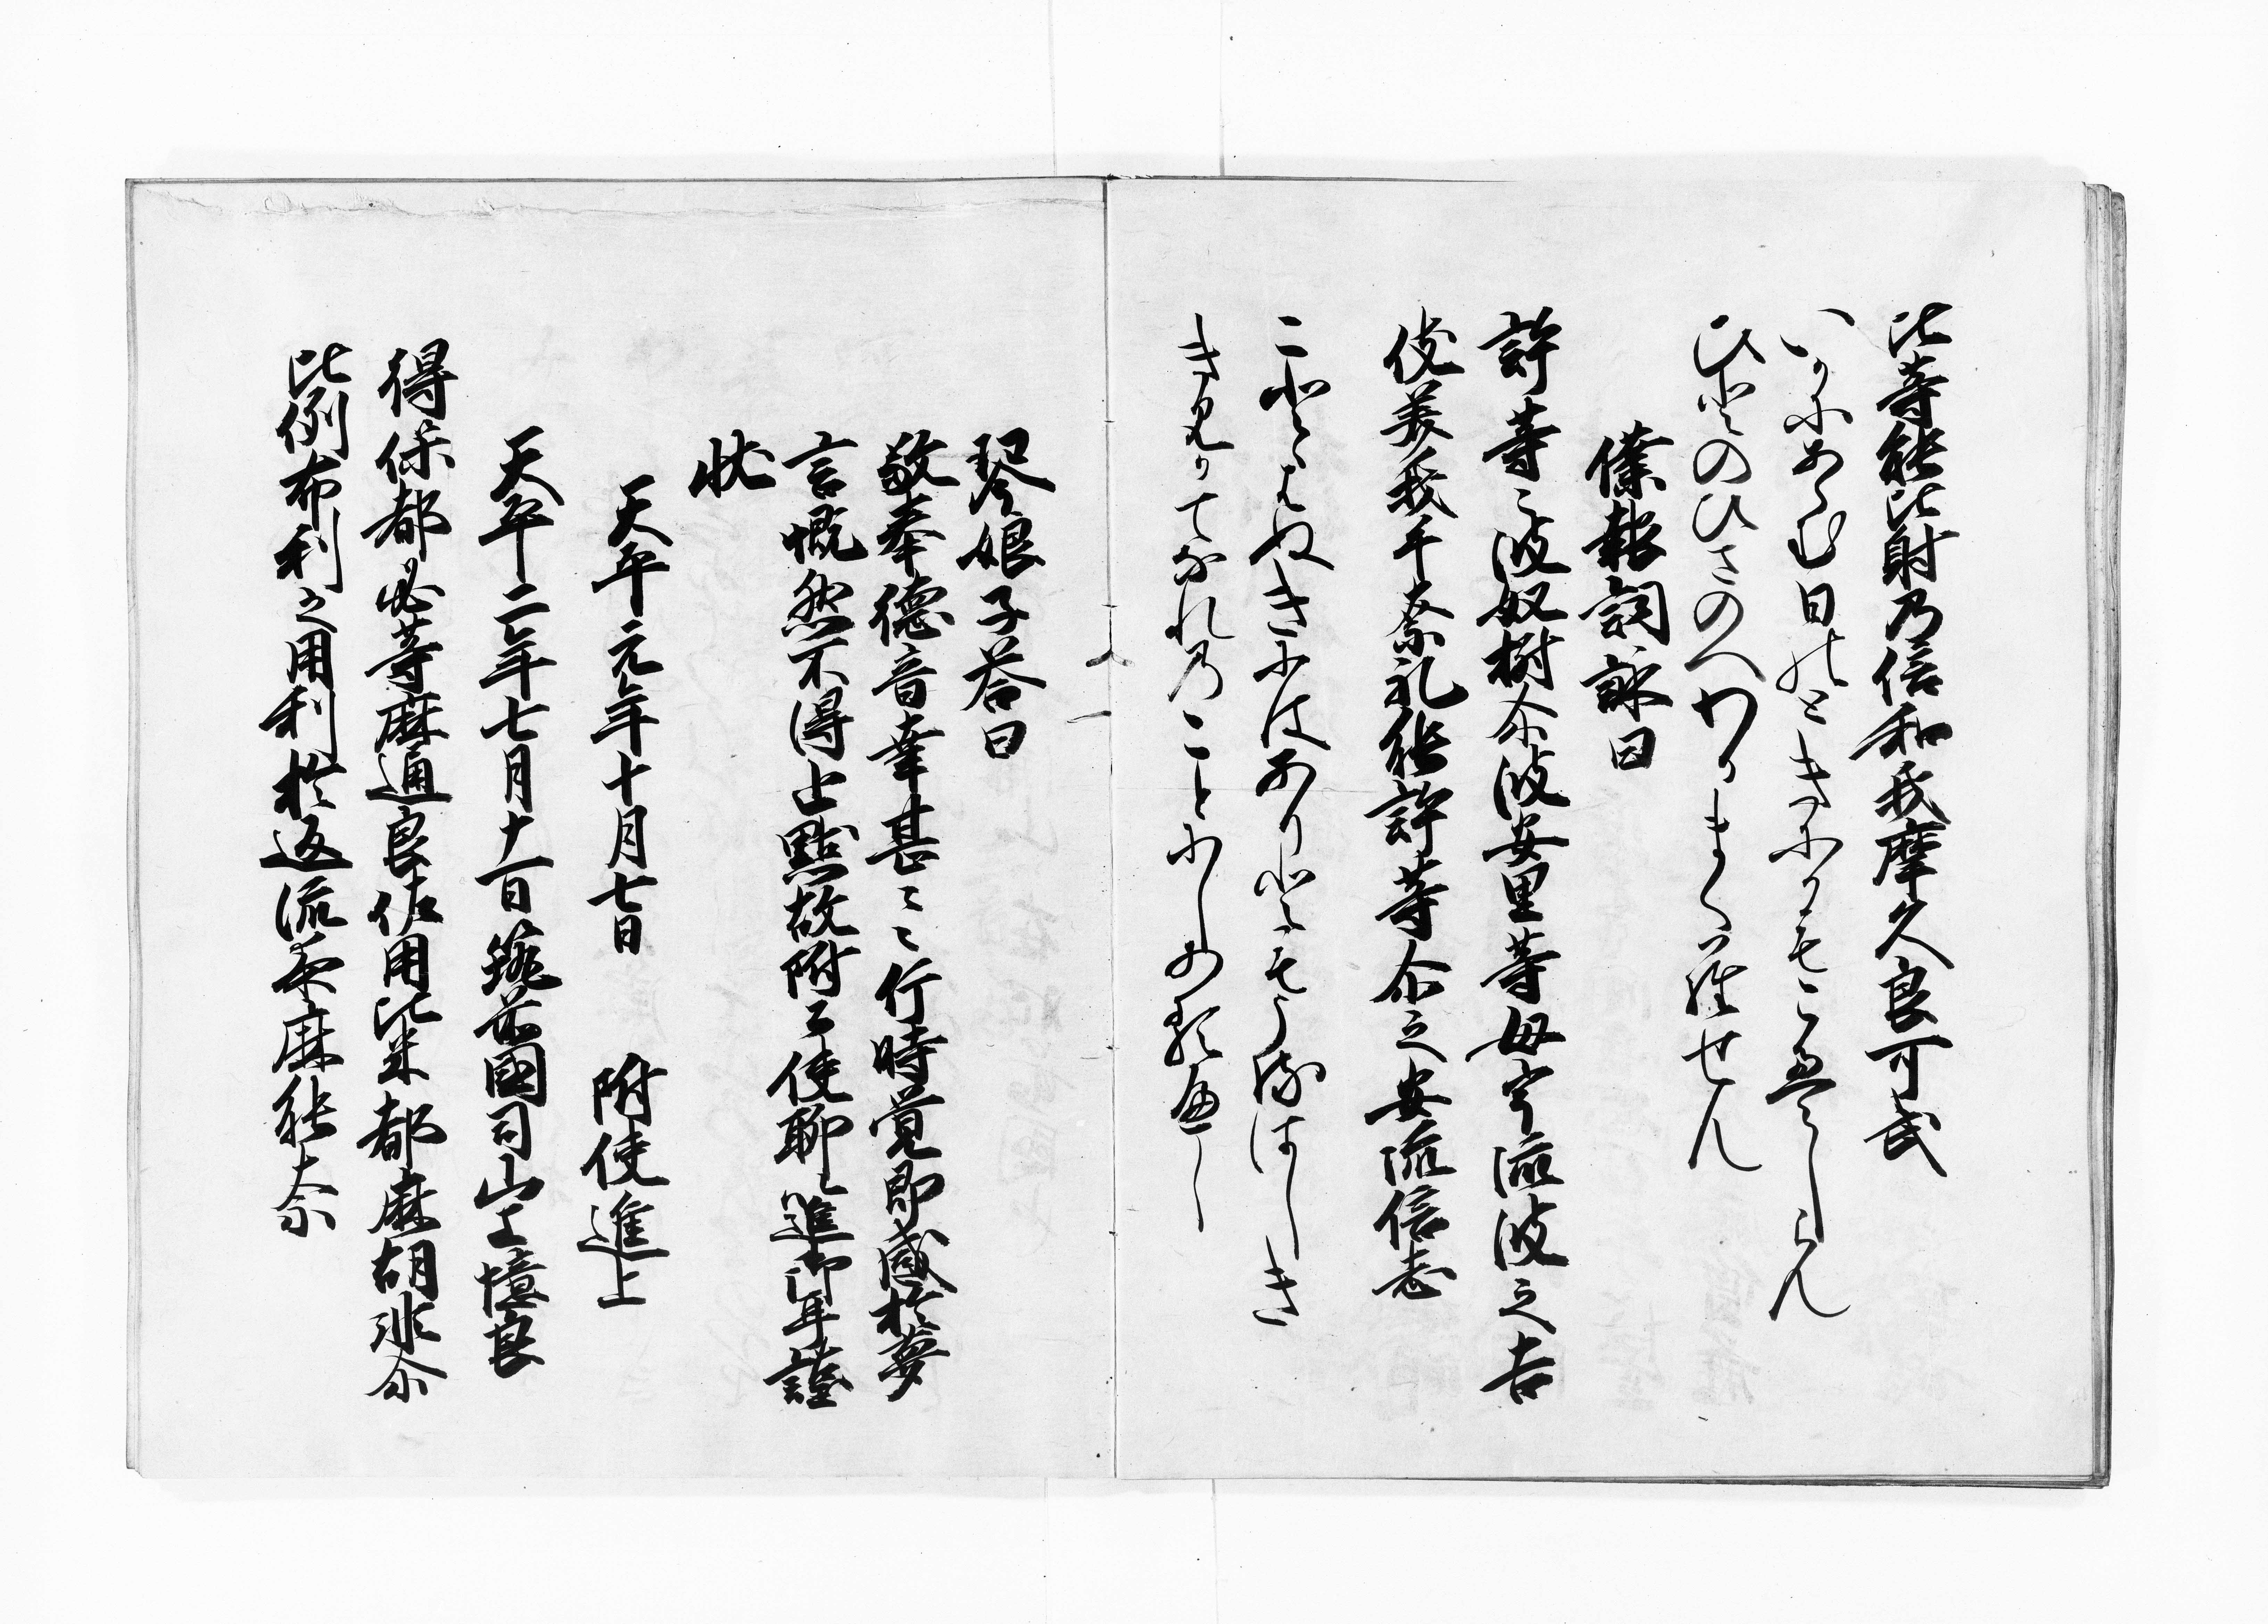 比等能比射乃倍和我摩久良可武
いかにあらむ日のときにかもこゑしらん
ひとのひさのへわかまくらせん
僕報詩詠曰
許等々波奴樹尓波安里等母宇流波之吉
伎美我手奈礼能許等尓之安流倍志
ことゝはぬきにはありともうるはしき
きみかてなれのことにしあるへし
琴娘子答曰
敬奉徳音幸甚々々行時覚即感於夢
言慨然不得止黙故附公使聊進御耳謹
状
天平元年十月七日　附使進上
天平二年七月十一日筑前國司山上憶良
得保都必等麻通良佐用比米都麻胡非尓
比例布利之用利於返流夜麻能奈